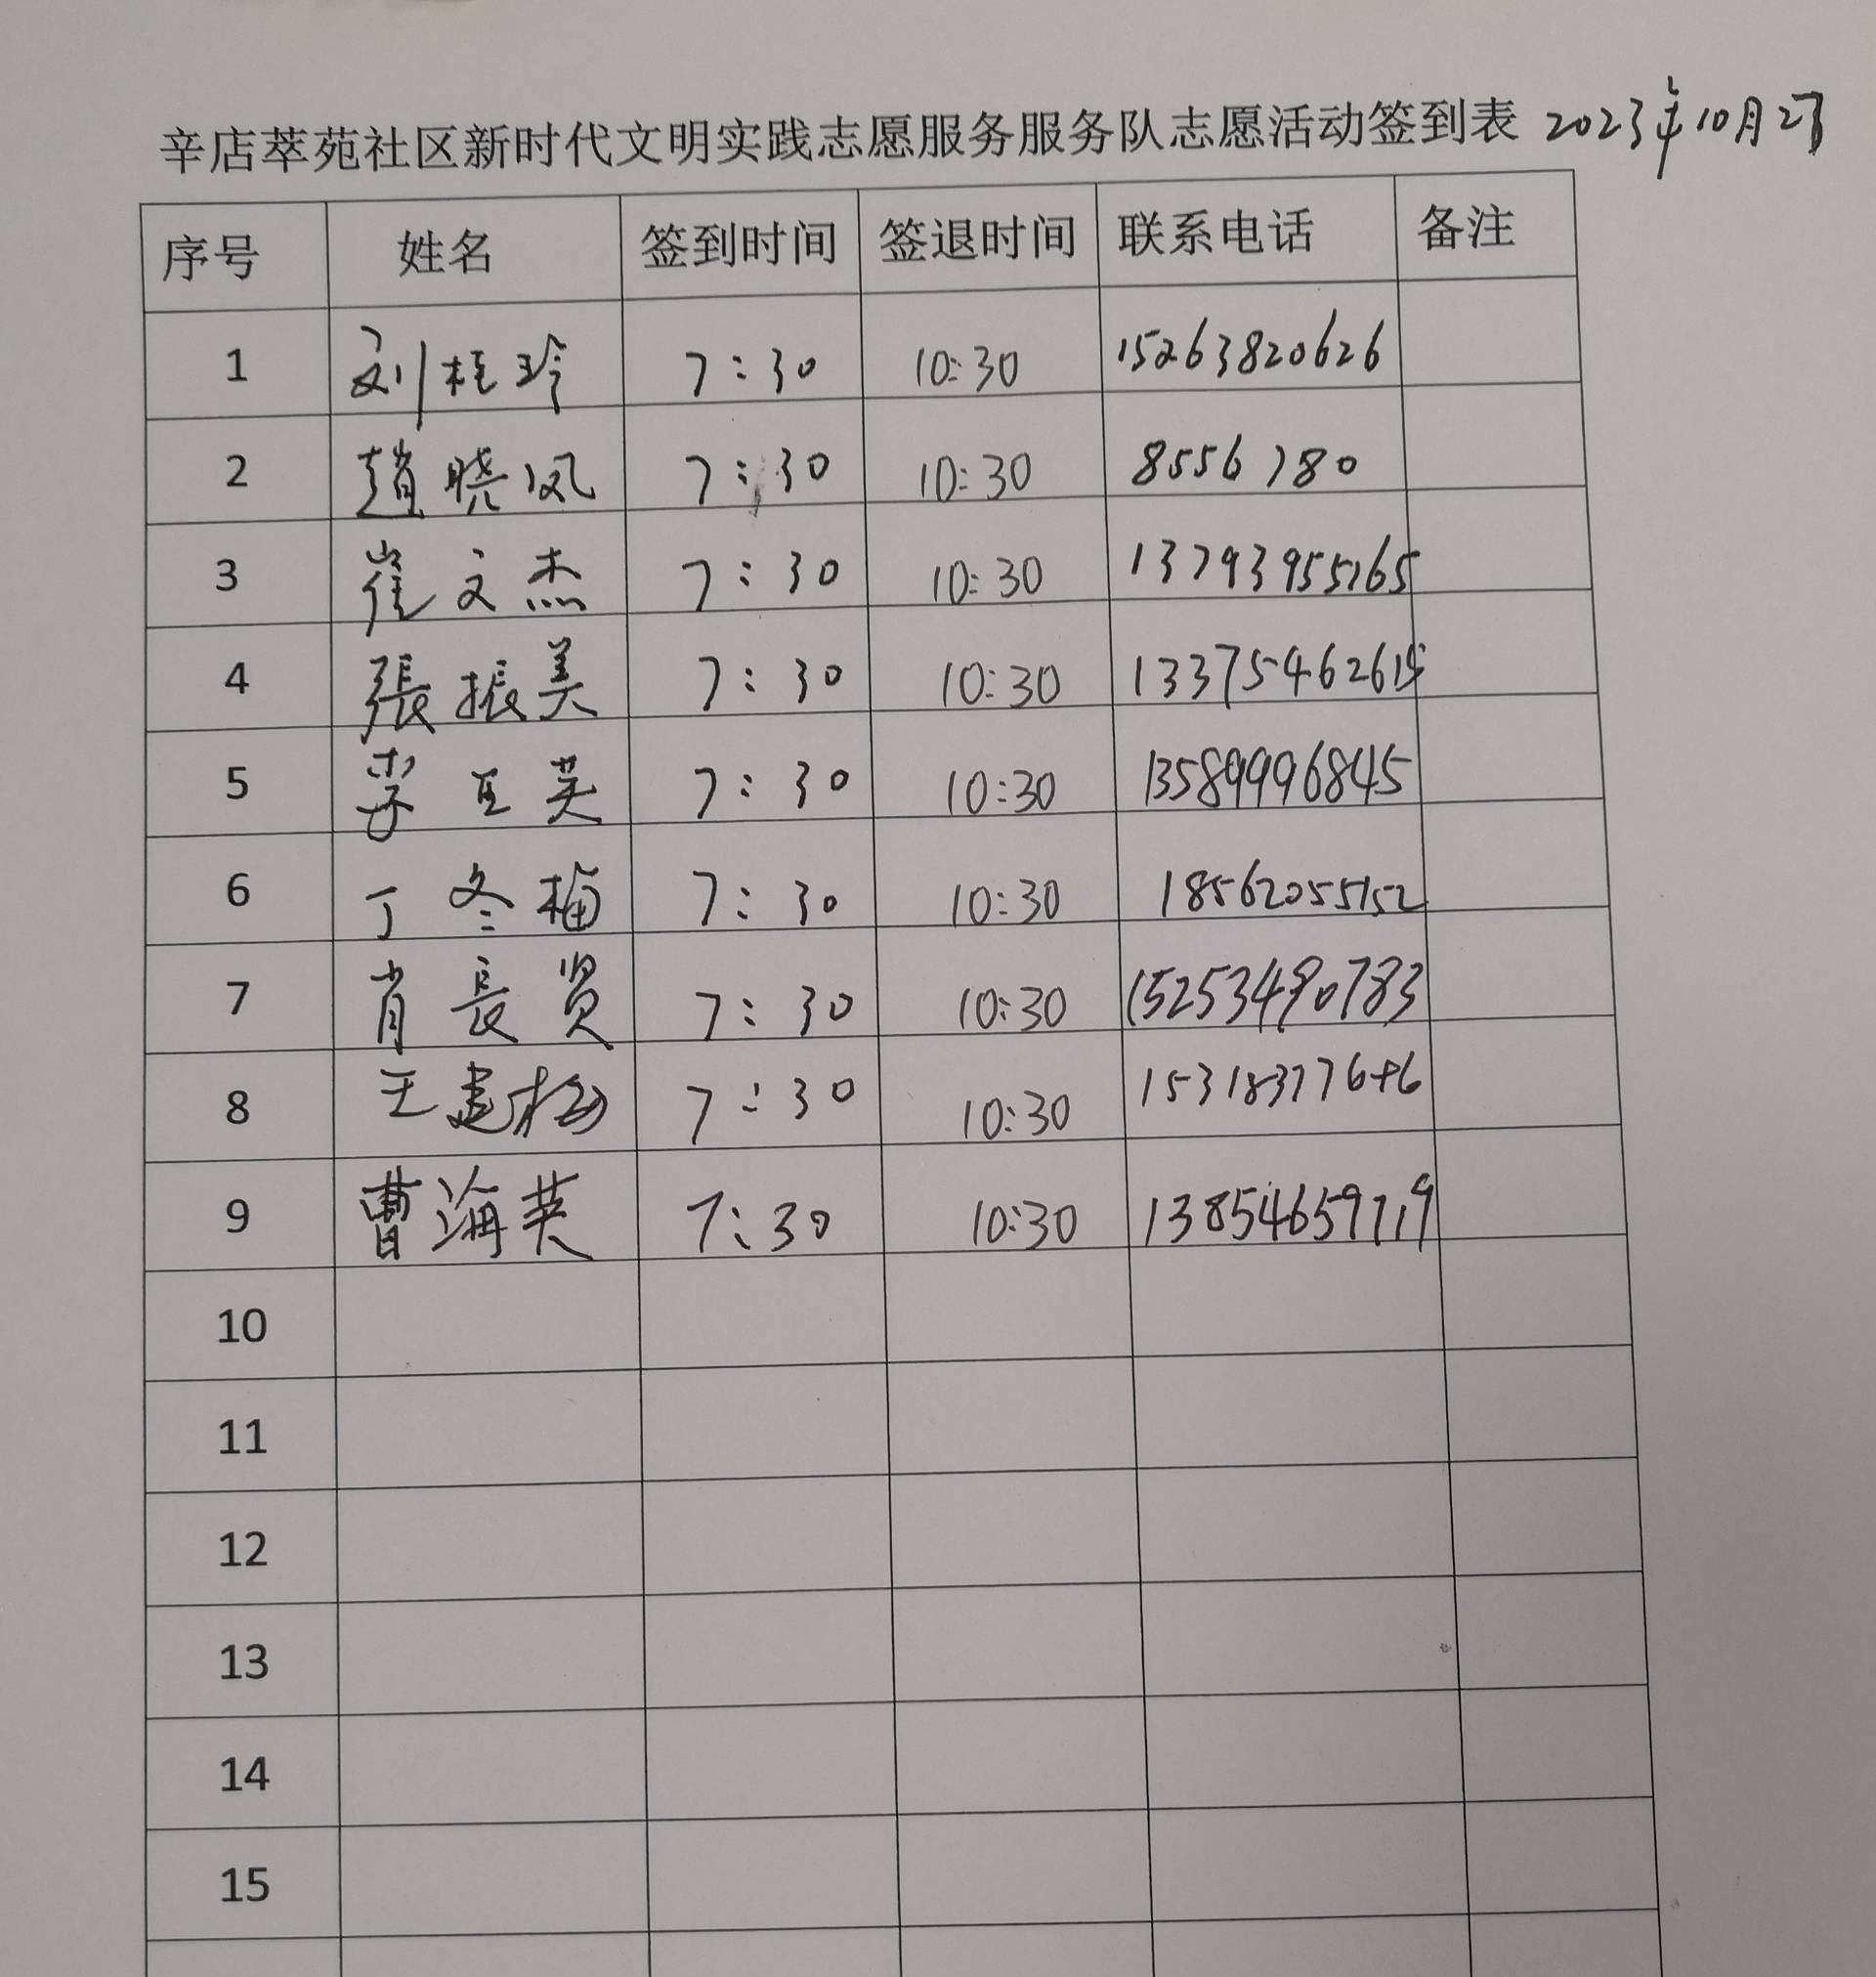 辛店萃苑社区新时代文明实践志愿服务服务队志愿活动签到表 2023年10月27
序号 姓名 签到时间 签退时间 联系电话 备注
1 刘桂玲 7:30 10:30 15263820626
2 趙晓凤 7:30 10:30 8556780
3 崔文杰 7:30 10:30 13793955165
4 張振美 7:30 10:30
5 李玉英 7:30 10:30 13589996845
6 丁冬梅 7:30 10:30 18562055152
7 肖長贤 7:30 10:30 15253490783
8 王建松 7:30 10:30
9 曹海英 7:30 10:30 13854659719
10
11
12
13
14
15